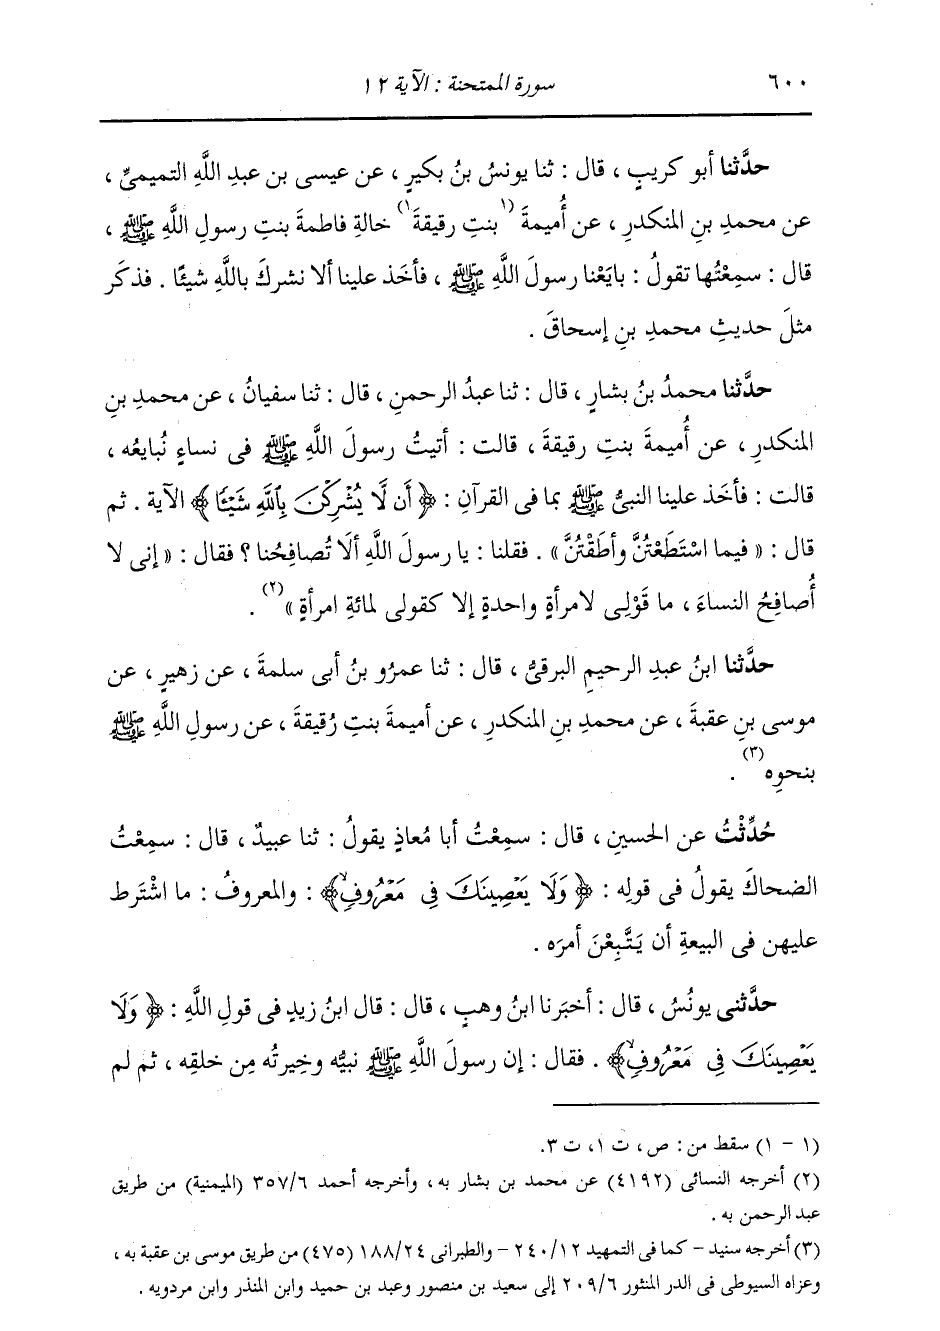 ٦٠٠ سورة الممتحنة : الآية ١٢
حدَّثنا أبو كريبٍ ، قال : ثنا يونسُ بنُ بكيرٍ ، عن عيسى بن عبدِ اللَّهِ التميميِّ ،
عن محمدِ بنِ المنكدرِ ، عن أُميمةَ (١ بنتِ رقيقةَ ١) خالةِ فاطمةَ بنتِ رسولِ اللَّهِ ﷺ ،
قال : سمِعْتُها تقولُ : بايَعْنا رسولَ اللَّهِ ﷺ ، فأخَذ علينا ألا نشركَ باللَّهِ شيئًا . فذكَر
مثلَ حديثِ محمدِ بنِ إسحاقَ .
حدَّثنا محمدُ بنُ بشارٍ ، قال : ثنا عبدُ الرحمنِ ، قال : ثنا سفيانُ ، عن محمدِ بنِ
المنكدرِ ، عن أُميمةَ بنتِ رقيقةَ ، قالت : أتيتُ رسولَ اللَّهِ ﷺ فى نساءٍ نُبايعُه ،
قالت : فأخَذ علينا النبىُّ ﷺ بما فى القرآنِ : ﴿ أَن لَّا يُشْرِكْنَ بِٱللَّهِ شَيْـًٔا ﴾ الآية . ثم
قال : « فيما اسْتَطَعْتُنَّ وأطَقْتُنَّ » . فقلنا : يا رسولَ اللَّهِ ألَا تُصافِحُنا ؟ فقال : « إنى لا
أُصافِحُ النساءَ ، ما قَوْلِى لامرأةٍ واحدةٍ إلا كقولى لمائةِ امرأةٍ »(٢) .
حدَّثنا ابنُ عبدِ الرحيمِ البرقىُّ ، قال : ثنا عمرُو بنُ أبى سلمةَ ، عن زهيرٍ ، عن
موسى بنِ عقبةَ ، عن محمدِ بنِ المنكدرِ ، عن أميمةَ بنتِ رُقيقةَ ، عن رسولِ اللَّهِ ﷺ
بنحوِه(٣) .
حُدِّثْتُ عن الحسينِ ، قال : سمِعْتُ أبا مُعاذٍ يقولُ : ثنا عبيدٌ ، قال : سمِعْتُ
الضحاكَ يقولُ فى قولِه : ﴿ وَلَا يَعْصِينَكَ فِى مَعْرُوفٍ ۙ ﴾ : والمعروفُ : ما اشْتَرط
عليهن فى البيعةِ أن يَتَّبِعْنَ أمرَه .
حدَّثنى يونُسُ ، قال : أخبَرنا ابنُ وهبٍ ، قال : قال ابنُ زيدٍ فى قولِ اللَّهِ : ﴿ وَلَا
يَعْصِينَكَ فِى مَعْرُوفٍ ۙ ﴾ . فقال : إن رسولَ اللَّهِ ﷺ نبيُّه وخِيرتُه مِن خلقِه ، ثم لم
(١ - ١) سقط من : ص ، ت ١، ت ٣.
(٢) أخرجه النسائى (٤١٩٢) عن محمد بن بشار به ، وأخرجه أحمد ٣٥٧/٦ (الميمنية) من طريق
عبد الرحمن به .
(٣) أخرجه سنيد - كما فى التمهيد ٢٤٠/١٢ - والطبرانى ١٨٨/٢٤ (٤٧٥) من طريق موسى بن عقبة به ،
وعزاه السيوطى فى الدر المنثور ٢٠٩/٦ إلى سعيد بن منصور وعبد بن حميد وابن المنذر وابن مردويه .